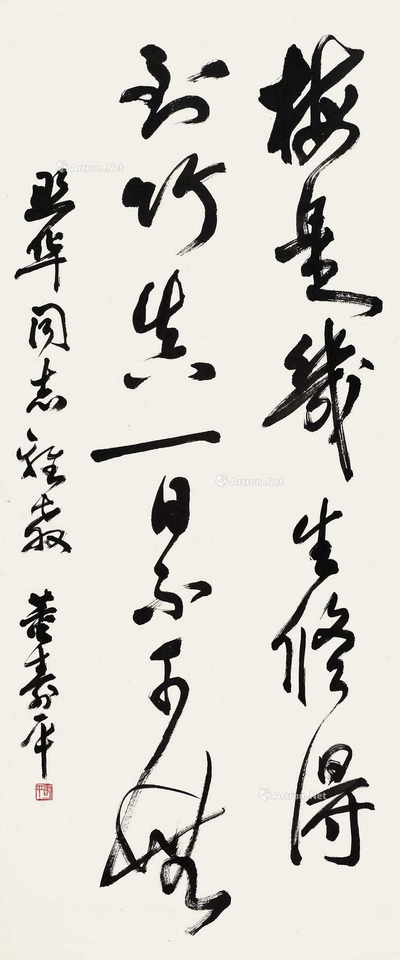 梅是幾生修得
到竹真一日不可無
华同志雅教 董寿平
Artron.Net
Artron.Net
Artron.Net